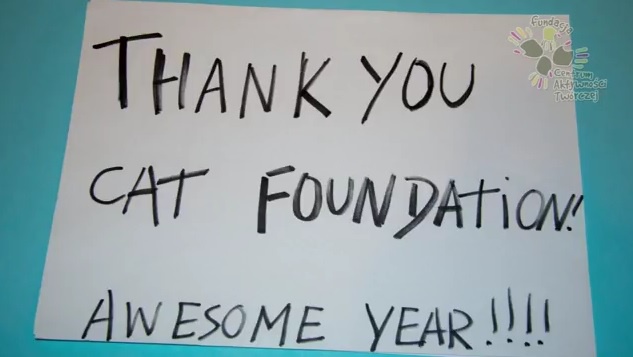 THANK YOU
CAT FOUNDATION!
AWESOME YEAR!!!!
Fundacja
Centrum
Aktywności
Twórczej